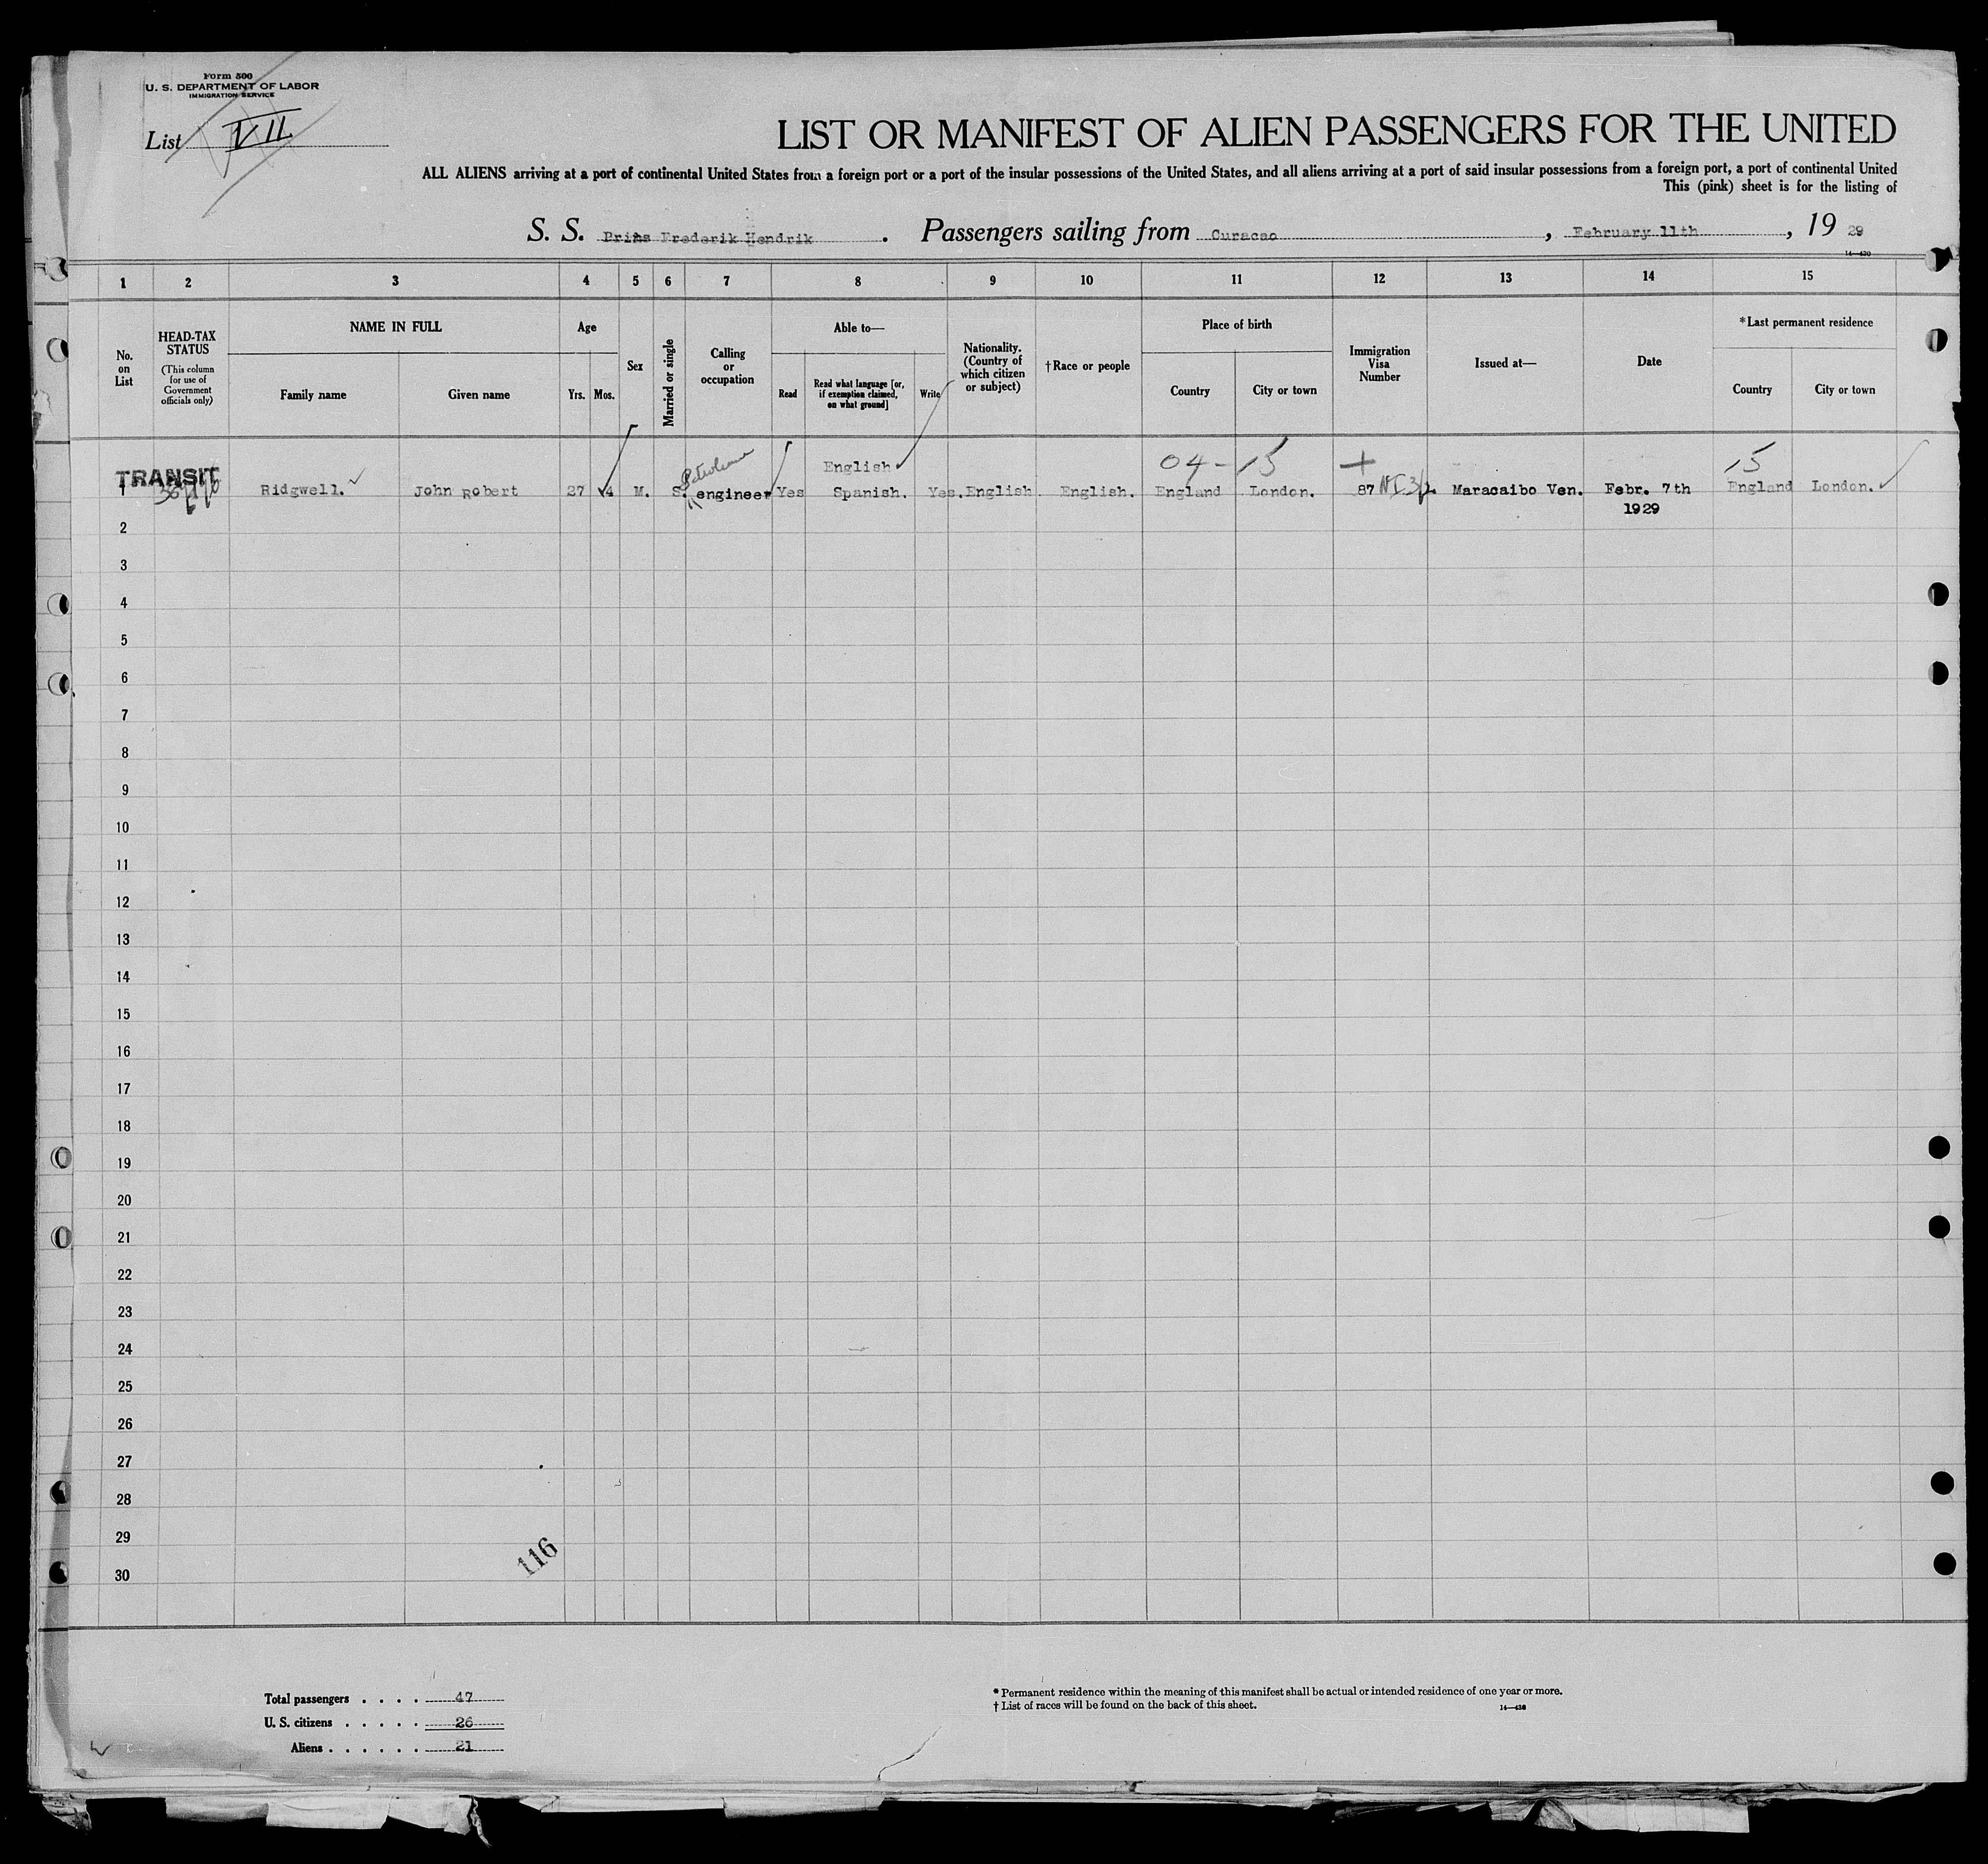 Form 500
U. S. DEPARTMENT OF LABOR
IMMIGRATION SERVICE
List VII
LIST OR MANIFEST OF ALIEN PASSENGERS FOR THE UNITED
ALL ALIENS arriving at a port of continental United States from a foreign port or a port of the insular possessions of the United States, and all aliens arriving at a port of said insular possessions from a foreign port, a port of continental United
This (pink) sheet is for the listing of
S. S. Prins Frederik Hendrik . Passengers sailing from Curacao , February 11th , 19 29
14—430
1 2 3 4 5 6 7 8 9 10 11 12 13 14 15
No. on List
HEAD-TAX STATUS
(This column for use of Government officials only)
NAME IN FULL
Family name
Given name
Age
Yrs.
Mos.
Sex
Married or single
Calling or occupation
Able to—
Read
Read what language [or, if exemption claimed, on what ground]
Write
Nationality. (Country of which citizen or subject)
†Race or people
Place of birth
Country
City or town
Immigration Visa Number
Issued at—
Date
*Last permanent residence
Country
City or town
Petroleum English 04-15 + 15
TRANSIT
1 Ridgwell. John Robert 27 4 M. S. engineer Yes Spanish. Yes. English English. England London. 87 Maracaibo Ven. Febr. 7th England London.
1929
2
3
4
5
6
7
8
9
10
11
12
13
14
15
16
17
18
19
20
21
22
23
24
25
26
27
28
29
30
116
Total passengers . . . . 47
U. S. citizens . . . . . 26
Aliens . . . . . . 21
* Permanent residence within the meaning of this manifest shall be actual or intended residence of one year or more.
† List of races will be found on the back of this sheet.